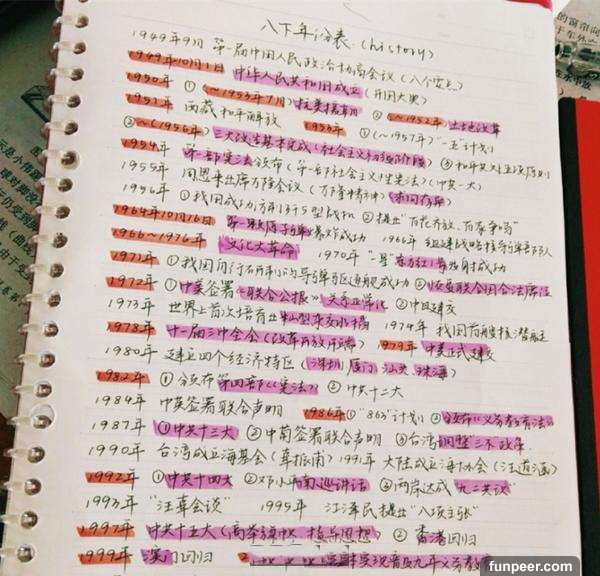 八下年份表 (history)
1949年9月 第一届中国人民政治协商会议 (八个党员)
1949年10月1日 中华人民共和国成立 (开国大典)
1950年 ① (~1953年7月) 抗美援朝 ② (~1952年) 土地改革
1951年 西藏和平解放 1953年 ① (~1957年) 一五计划
② ~(1956年) 三大改造基本完成 (社会主义初级阶段) ③ 和平共处五项原则
1954年 第一部宪法颁布 (第一部社会主义性宪法) (中共一大)
1955年 周恩来出席万隆会议 (万隆精神) 求同存异
1956年 ① 我国成功仿制歼5型战机 ② 提出"百花齐放、百家争鸣"
1964年10月16日 第一颗原子弹爆炸成功 1966年 组建战略核导弹部队
1966~1976年 文化大革命 1970年 "一号"东方红一号发射成功
1971年 ① 我国自行研制的导弹驱逐舰成功 ② 恢复联合国合法席位
1972年 ① 中美签署《联合公报》关系正常化 ② 中日建交
1973年 世界上首次培育出籼型杂交水稻 1974年 我国首艘核潜艇
1978年 十一届三中全会 (改革开放开端) 1979年 中美正式建交
1980年 建立四个经济特区 (深圳 厦门 汕头 珠海)
1982年 ① 颁布第四部《宪法》 ② 中共十二大
1984年 中英签署联合声明 1986年 ① "863"计划 ② 颁布《义务教育法》
1987年 ① 中共十三大 ② 中葡签署联合声明 ③ 台湾调整"三不"政策
1990年 台湾成立海基会 (辜振甫) 1991年 大陆成立海协会 (汪道涵)
1992年 ① 中共十四大 ② 邓小平南巡讲话 ③ 两岸达成"九二共识"
1993年 "汪辜会谈" 1995年 江泽民提出"八项主张"
1997年 ① 中共十五大 (高举旗帜、指导思想) ② 香港回归
1999年 澳门回归 2 实现普及九年义务教育
funpeer.com